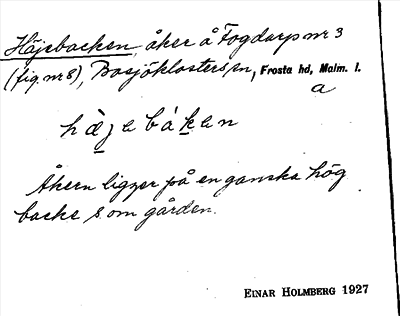 Höjebacken, åker å Fogdarp nr 3
(fig. nr 8), Bosjöklosters sn, Frosta hd, Malm. l.
a
Åkern ligger på en ganska hög
backe s. om gården.
EINAR HOLMBERG 1927